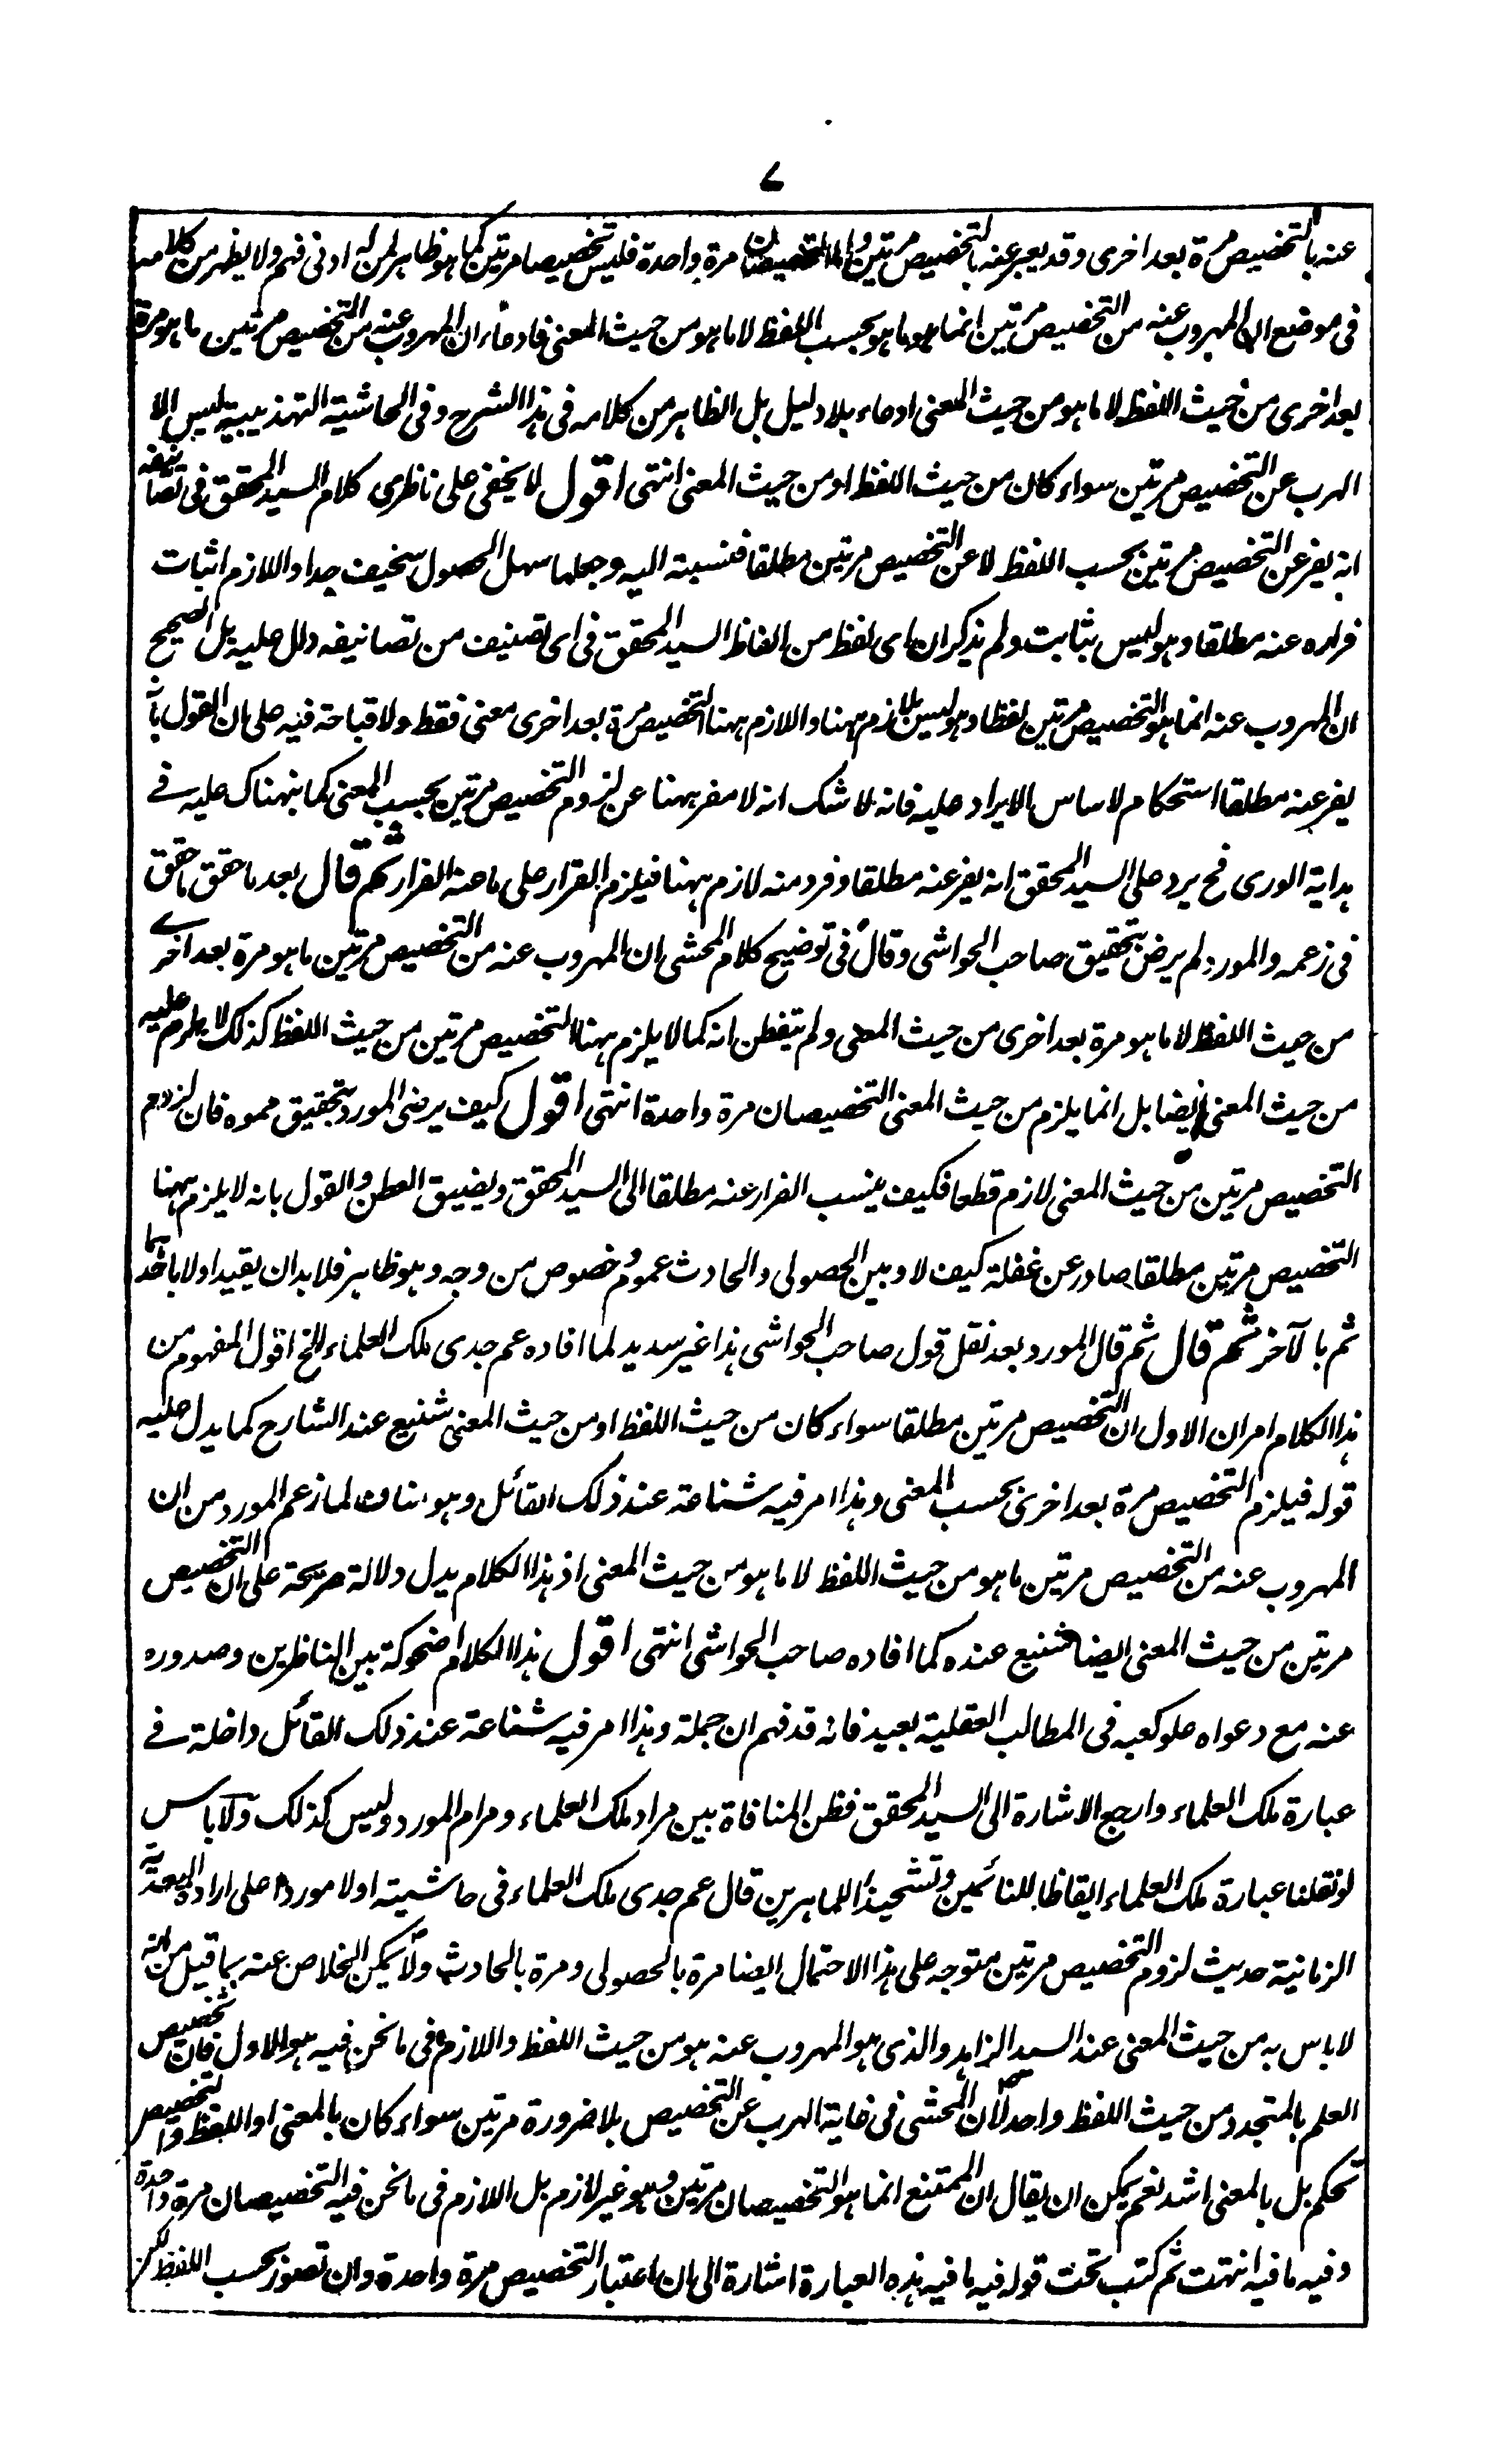 ٧
عنه بالتخصيص مرة بعد اخرى وقد يعبر عنه بالتخصيص مرتين واما التخصيصان مرة واحدة فليس تخصيصا مرتين كما هو ظاهر لمن له ادنى فهم ولا يظهر من كلامه
فى موضع ان المهروب عنه من التخصيص مرتين انما هو ما هو بحسب اللفظ لا ما هو من حيث المعنى فادعاء ان المهروب عنه من التخصيص مرتين ما هو مرة
بعد اخرى من حيث اللفظ لا ما هو من حيث المعنى ادعاء بلا دليل بل الظاهر من كلامه فى هذا الشرح وفى الحاشية التهذيبية ليس الا
الهرب عن التخصيص مرتين سواء كان من حيث اللفظ او من حيث المعنى انتهى اقول لا يخفى على ناظرى كلام السيد المحقق فى تصانيفه
انه يفر عن التخصيص مرتين بحسب اللفظ لا عن التخصيص مرتين مطلقا فنسبته اليه وجعلها سهل الحصول سخيف جدا واللازم اثبات
فراره عنه مطلقا وهو ليس بثابت ولم يذكر ان اى لفظ من الفاظ السيد المحقق فى اى تصنيف من تصانيفه دل عليه بل الصحيح
ان المهروب عنه انما هو التخصيص مرتين لفظا وهو ليس بلازم ههنا واللازم ههنا التخصيص مرة بعد اخرى معنى فقط ولا قباحة فيه على ان القول بانه
يفر عنه مطلقا استحكام لاساس الايراد عليه فانه لا شك انه لا مفر ههنا عن لزوم التخصيص مرتين بحسب المعنى كما نبهناك عليه فى
هداية الورى فح يرد على السيد المحقق انه يفر عنه مطلقا وفرد منه لازم ههنا فيلزم القرار على ما عنه الفرار ثم قال بعد ما حقق ما حقق
فى زعمه والمورد لم يرض بتحقيق صاحب الحواشى وقال فى توضيح كلام المحشى ان المهروب عنه من التخصيص مرتين ما هو مرة بعد اخرى
من حيث اللفظ لا ما هو مرة بعد اخرى من حيث المعنى ولم يتفطن انه كما لا يلزم ههنا التخصيص مرتين من حيث اللفظ كذلك لا يلزم عليه
من حيث المعنى ايضا بل انما يلزم من حيث المعنى التخصيصان مرة واحدة انتهى اقول كيف يرضى المورد بتحقيق مموه فان لزوم
التخصيص مرتين من حيث المعنى لازم قطعا فكيف ينسب الفرار عنه مطلقا الى السيد المحقق ويضيق العطن والقول بانه لا يلزم ههنا
التخصيص مرتين مطلقا صادر عن غفلة كيف لا وبين الحصولى والحادث عموم خصوص من وجه وهو ظاهر فلا بد ان يقيد اولا باحدهما
ثم بالآخر ثم قال ثم قال المورد بعد نقل قول صاحب الحواشى هذا غير سديد لما افاده عم جدى ملك العلماء الخ اقول المفهوم من
هذا الكلام امران الاول ان التخصيص مرتين مطلقا سواء كان من حيث اللفظ او من حيث المعنى شنيع عند الشارح كما يدل عليه
قوله فيلزم التخصيص مرة بعد اخرى بحسب المعنى وهذا امر فيه شناعة عند ذلك القائل وهو مناف لما زعم المورد من ان
المهروب عنه من التخصيص مرتين ما هو من حيث اللفظ لا ما هو من حيث المعنى اذ هذا الكلام يدل دلالة صريحة على ان التخصيص
مرتين من حيث المعنى ايضا شنيع عنده كما افاده صاحب الحواشى انتهى اقول هذا الكلام اضحوكة بين الناظرين وصدوره
عنه مع دعواه علو كعبه فى المطالب العقلية بعيد فانه قد فهم ان جملة وهذا امر فيه شناعة عند ذلك القائل داخلة فى
عبارة ملك العلماء وارجع الاشارة الى السيد المحقق فظن المنافاة بين مراد ملك العلماء ومرام المورد وليس كذلك ولا باس
لو نقلنا عبارة ملك العلماء ايقاظا للنائمين وتشحيذا للماهرين قال عم جدى ملك العلماء فى حاشيته اولا موردا على ارادة البعدية
الزمانية حديث لزوم التخصيص مرتين متوجه على هذا الاحتمال ايضا مرة بالحصولى ومرة بالحادث ولا يمكن الخلاص عنه بما قيل من انه
لا باس به من حيث المعنى عند السيد الزاهد والذى هو المهروب عنه هو من حيث اللفظ واللازم فى ما نحن فيه هو الاول فان تخصيص
العلم بالمتجدد من حيث اللفظ واحد لان المحشى فى غاية الهرب عن التخصيص بلا ضرورة مرتين سواء كان بالمعنى او اللفظ والتخصيص
تحكم بل بالمعنى اشد نعم يمكن ان يقال ان الممتنع انما هو التخصيصان مرتين وهو غير لازم بل اللازم فى ما نحن فيه التخصيصان مرة واحدة
وفيه ما فيه انتهت ثم كتب تحت قوله فيه ما فيه هذه العبارة اشارة الى ان اعتبار التخصيص مرة واحدة وان تصور بحسب اللفظ لكن